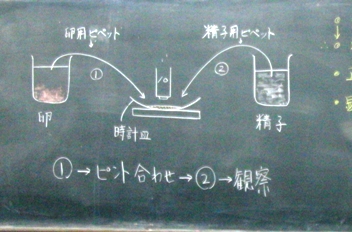 卵用ピペット
精子用ピペット
①
②
卵
時計皿
精子
①→ピント合わせ→②→観察